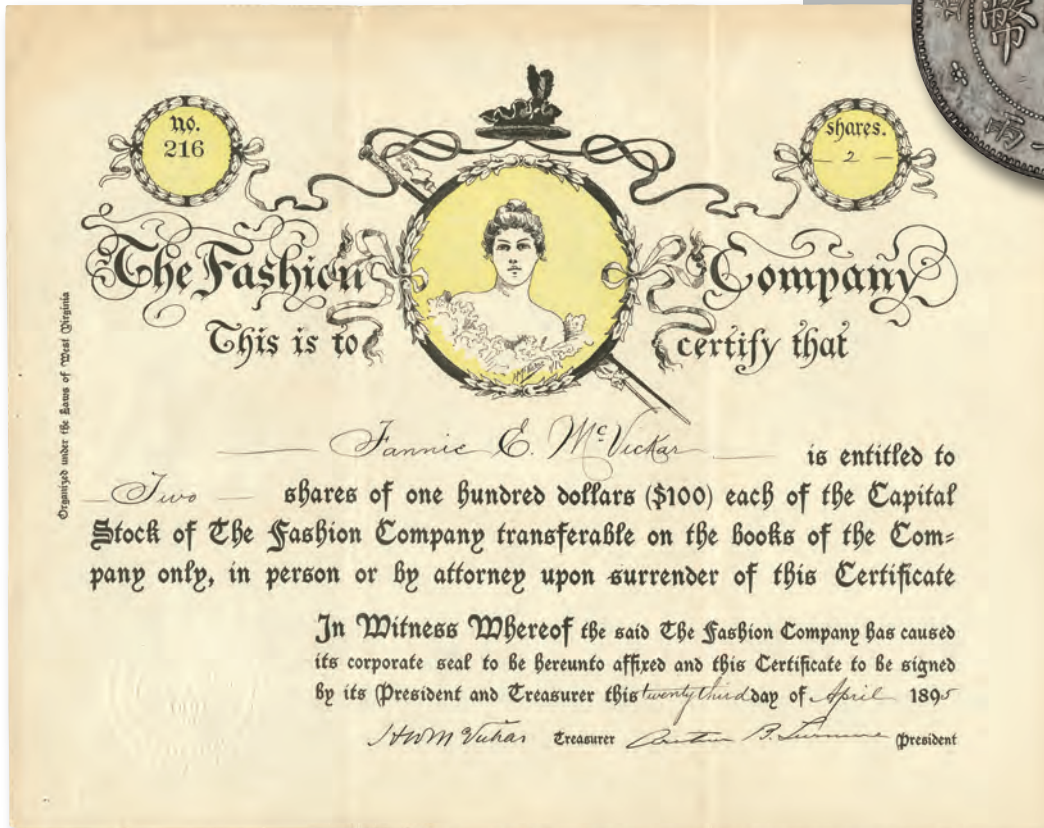 no.
216
shares.
2
The Fashion Company
This is to certify that
Organized under the Laws of West Virginia
Fannie E. McVickar is entitled to
Two shares of one hundred dollars ($100) each of the Capital
Stock of The Fashion Company transferable on the books of the Com=
pany only, in person or by attorney upon surrender of this Certificate
In Witness Whereof the said The Fashion Company has caused
its corporate seal to be hereunto affixed and this Certificate to be signed
by its President and Treasurer this twenty third day of April 1895
HWMcVickar Treasurer B. President
幣
兩